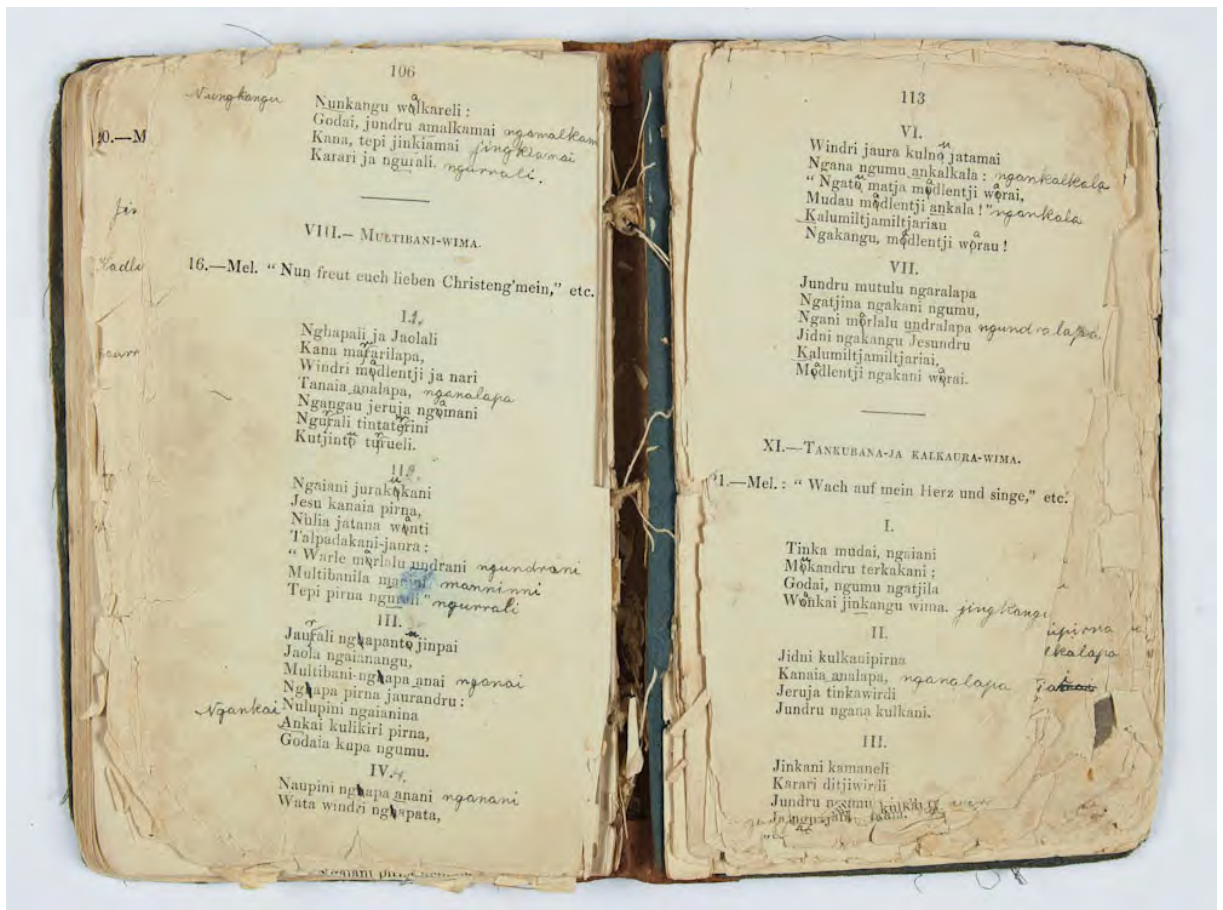 106
Nungkangu Nunkangu wolkareli :
Godai, jundru amalkamai ngamalkam
Kana, tepi jinkiamai jingkiamai
Karari ja ngurali. ngurrali.
10.—M
Jin
VIII.— MULTIBANI-WIMA.
Kadli
16.—Mel. “ Nun freut euch lieben Christeng’mein,” etc.
I.
Nghapali ja Jaolali
Kana mararilapa,
Windri modlentji ja nari
Tanaia analapa, nganalapa
Ngangau jeruja ngomani
Ngurali tintatorini
Kutjinto turueli.
II.
Ngaiani jurakokani
Jesu kanaia pirna,
Nulia jatana wonti
Talpadakani-jaura :
“ Warle morlalu undrani ngundrani
Multibanila manninni
Tepi pirna ngurali” ngurrali
III.
Jaurali nghapanto jinpai
Jaola ngaianangu,
Multibani-nghapa anai nganai
Nghapa pirna jaurandru :
Ngankai Nulupini ngaianina
Ankai kulikiri pirna,
Godaia kupa ngumu.
IV.
Naupini nghapa anani nganani
Wata windri nghapata,
113
VI.
Windri jaura kulno jatamai
Ngana ngumu ankalkala : ngankalkala
“ Ngato matja modlentji worai,
Mudau modlentji ankala ! ” ngankala
Kalumiltjamiltjariau
Ngakangu, modlentji worau !
VII.
Jundru mutulu ngaralapa
Ngatjina ngakani ngumu,
Ngani morlalu undralapa ngundralapa
Jidni ngakangu Jesundru
Kalumiltjamiltjariai,
Modlentji ngakani worai.
XI.—TANKUBANA-JA KALKAURA-WIMA.
21.—Mel. : “ Wach auf mein Herz und singe,” etc.
I.
Tinka mudai, ngaiani
Mokandru terkakani ;
Godai, ngumu ngatjila
Wonkai jinkangu wima. jingkangu
II.
Jidni kulkanipirna
Kanaia analapa, nganalapa
Jeruja tinkawirdi
Jundru ngana kulkani.
III.
Jinkani kamaneli
Karari ditjiwirdi
Jundru ngumu